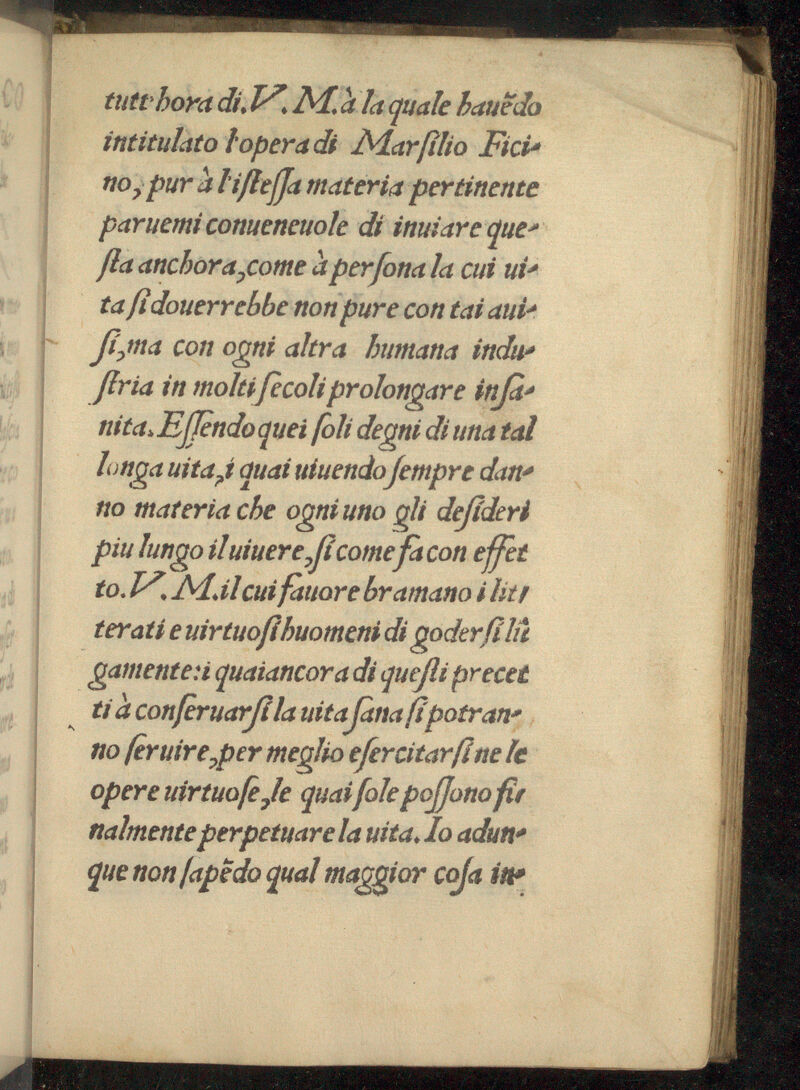 tutt'hora di.V. M. à la quale hauẽdo
intitulato l'opera di Marſilio Fici-
no, pur à l'iſteſſa materia pertinente
paruemi conueneuole di inuiare que-
ſta anchora, come à perſona la cui ui-
ta ſi douerrebbe non pure con tai aui-
ſi, ma con ogni altra humana indu-
ſtria in molti ſecoli prolongare in ſa-
nita. Eſſendo quei ſoli degni di una tal
longa uita, i quai uiuendo ſempre dan-
no materia che ogni uno gli deſideri
piu lungo il uiuere, ſi come fa con effet
to. V. M. il cui fauore bramano i lit-
terati e uirtuoſi huomeni di goderſi lũ
gamente: i quai ancora di queſti precet
ti à conſeruarſi la uita ſana ſi potran-
no ſeruire, per meglio eſercitarſi ne le
opere uirtuoſe, le quai ſole poſſono fi-
nalmente perpetuare la uita. Io adun-
que non ſapẽdo qual maggior coſa in-